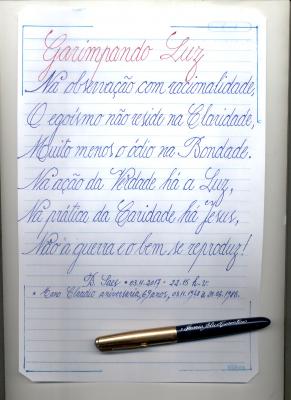 Garimpando Luz
Na observação com racionalidade,
O egoísmo não reside na Claridade,
Muito menos o ódio na Bondade.
Na ação da Verdade há a Luz,
Na prática da Caridade há Jesus,
Não à guerra e o bem se reproduz!
D. Saes • 03.11.2017 - 22:15 h.v.
aniversaria, 69 anos, 03.11.1948